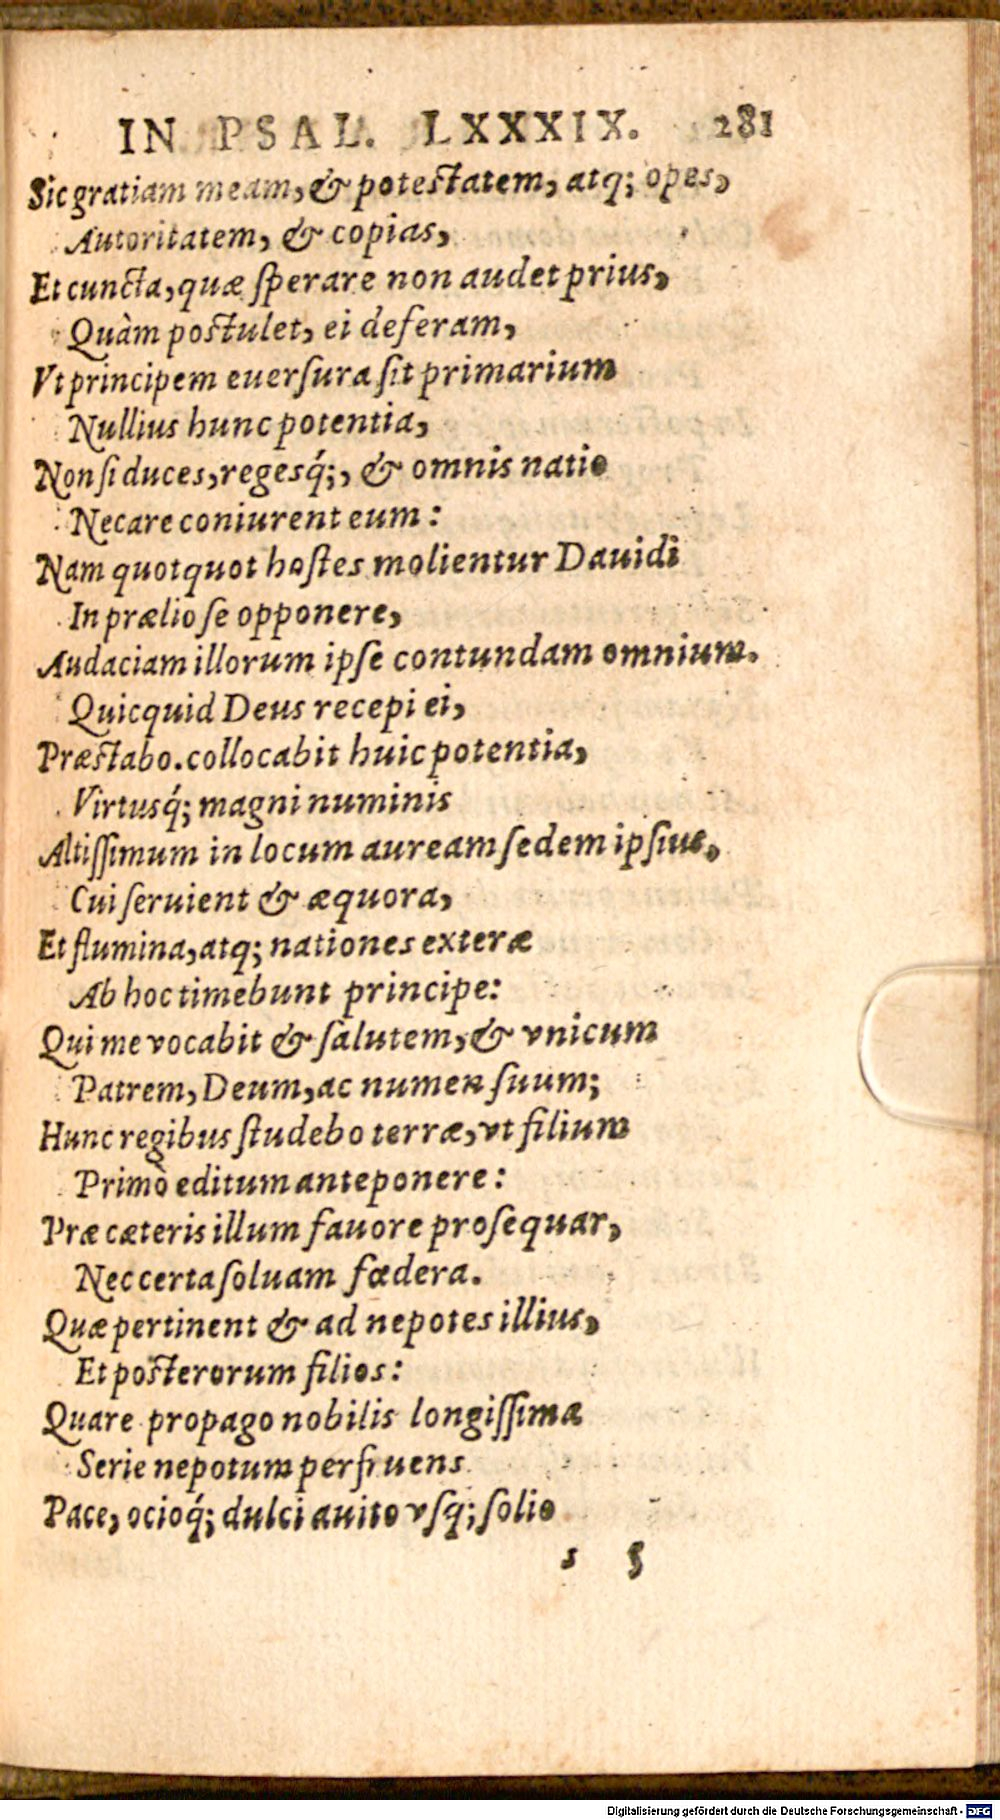 IN PSAL. LXXXIX. 281
Sic gratiam meam, & potestatem, atq; opes,
Autoritatem, & copias,
Et cuncta, quæ sperare non audet prius,
Quàm postulet, ei deferam,
Vt principem euersura sit primarium
Nullius hunc potentia,
Non si duces, regesq́;, & omnis natio
Necare coniurent eum:
Nam quotquot hostes molientur Dauidi
In prælio se opponere,
Audaciam illorum ipse contundam omnium.
Quicquid Deus recepi ei,
Præstabo. collocabit huic potentia,
Virtusq́; magni numinis
Altissimum in locum auream sedem ipsius,
Cui seruient & æquora,
Et flumina, atq; nationes exteræ
Ab hoc timebunt principe:
Qui me vocabit & salutem, & vnicum
Patrem, Deum, ac numen suum;
Hunc regibus studebo terræ, vt filium
Primò editum anteponere:
Præ cæteris illum fauore prosequar,
Nec certa soluam fœdera.
Quæ pertinent & ad nepotes illius,
Et posterorum filios:
Quare propago nobilis longissima
Serie nepotum perfruens
Pace, ocioq́; dulci auito vsq; solio
s 5
Digitalisierung gefördert durch die Deutsche Forschungsgemeinschaft - DFG